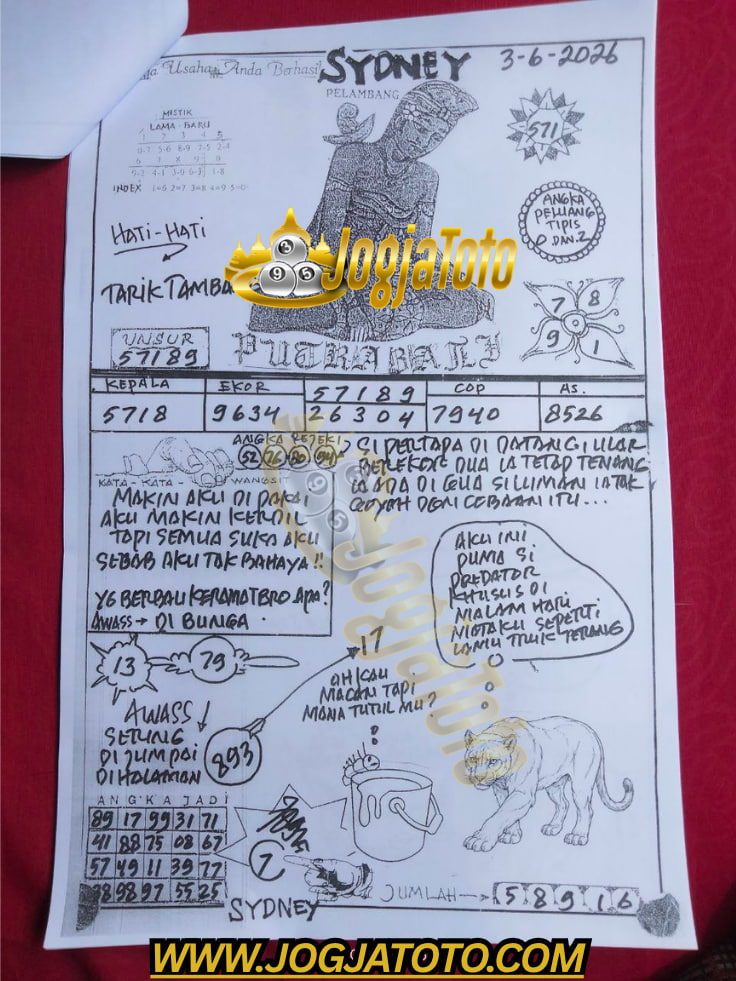 Usaha Anda Berhasil
SYDNEY
3-6-2026
PELAMBANG
MISTIK
LAMA - BARU
1 2 3 4 5
0-7 5-6 8-9 7-5 2-4
6 7 8 9 0
9-2 4-1 3-0 6-3 1-8
INDEX 1=6 2=7 3=8 4=9 5=0
571
ANGKA
PELUANG
TIPIS
0 DAN.2
HATI-HATI
TARIK TAMBA
JogjaToto
8 9 5
7 8
9 1
UNSUR
57189
PUTRA BALI
KEPALA EKOR 57189 COP AS.
5718 9634 26304 7940 8526
ANGKA REJEKI
52 76 80 94
KATA - KATA - WANGSIT
MAKIN AKU DI PAKAI
AKU MAKIN KERDIL
TAPI SEMUA SUKA AKU
SEBAB AKU TAK BAHAYA !!
YG BERBAU KERAMAT BRO APA?
AWASS → DI BUNGA
SI PERTAPA DI DATANGI ULAR
BEREKOR DUA IA TETAP TENANG
IA ADA DI GUA SILUMAN IA TAK
GOYAH DGN COBAAN ITU...
AKU INI
PUMA SI
PREDATOR
KHUSUS DI
MALAM HARI
MATAKU SEPERTI
LAMU TITIK TERANG
JogjaToto
13
79
17
AH KAU
MACAN TAPI
MANA TUTUL MU?
AWASS
SERING
DI JUMPAI
DI HALAMAN
893
ANGKA JADI
89 17 99 31 71
41 88 75 08 67
57 49 11 39 77
38 98 97 55 25
7
SYDNEY
JUMLAH → 5 8 9 1 6
WWW.JOGJATOTO.COM